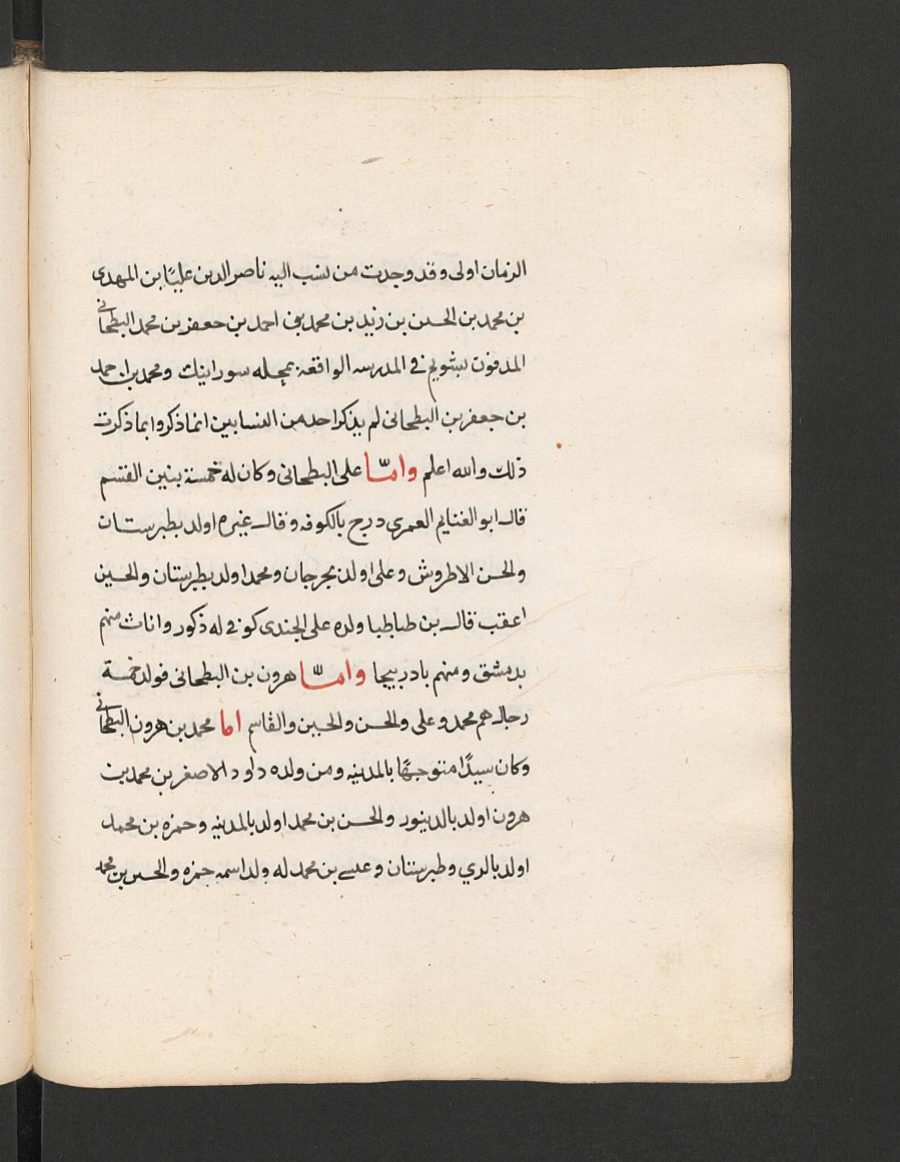 الزمان اولى وقد وجدت من نسب اليه ناصر الدين عليًا بن المهدى
بن محمد بن الحسن بن زيد بن محمد بن احمد بن جعفر بن محمد البطحانى
المدفون بشويخ فى المدرسه الواقعة بمحله سورانيك ومحمد بن احمد
بن جعفر بن البطحانى لم يذكر احد من النسابين انما ذكروا بما ذكرت
ذلك والله اعلم وامّا على البطحانى وكان له خمسة بنين القسم
قال ابو الغنايم العمرى درج بالكوفه وقال غيره اولد بطبرستان
والحسن الاطروش وعلى اولد بجرجان ومحمد اولد بطبرستان والحسين
اعقب قال بن طباطبا ولده على الجندى كوفى له ذكور واناث منهم
بدمشق ومنهم بادربيجا وامّا هرون بن البطحانى فولد خمسة
رجال هم محمد وعلى والحسن والحسين والقاسم اما محمد بن هرون البطحانى
وكان سيدًا متوجهًا بالمدينه ومن ولده داود الاصغر بن محمد بن
هرون اولد بالدينور والحسن بن محمد اولد بالمدينه وحمزه بن محمد
اولد بالري وطبرستان وعيسى بن محمد له ولد اسمه حمزه والحسن بن محمد